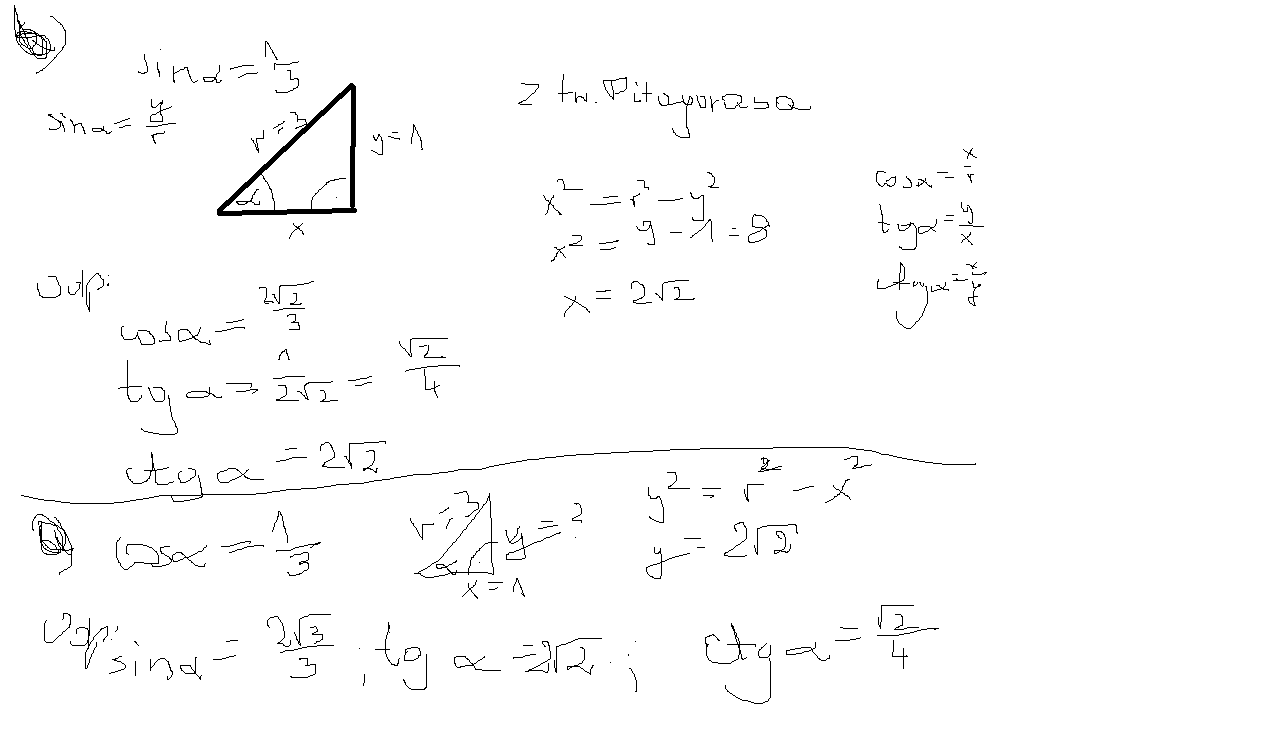 b)
sinα = 1/3
sinα = y/r
r = 3
y = 1
α
x
Z tw. Pitagorasa
x² = r² - y²
x² = 9 - 1 = 8
x = 2√2
cosα = x/r
tgα = y/x
ctgα = x/y
Odp:
cosα = 2√2/3
tgα = 1/2√2 = √2/4
ctgα = 2√2
cosα = 1/3
r = 3
y = ?
α
x = 1
y² = r² - x²
y = 2√2
Odp: sinα = 2√3/3 ; tgα = 2√2 ; ctgα = √2/4